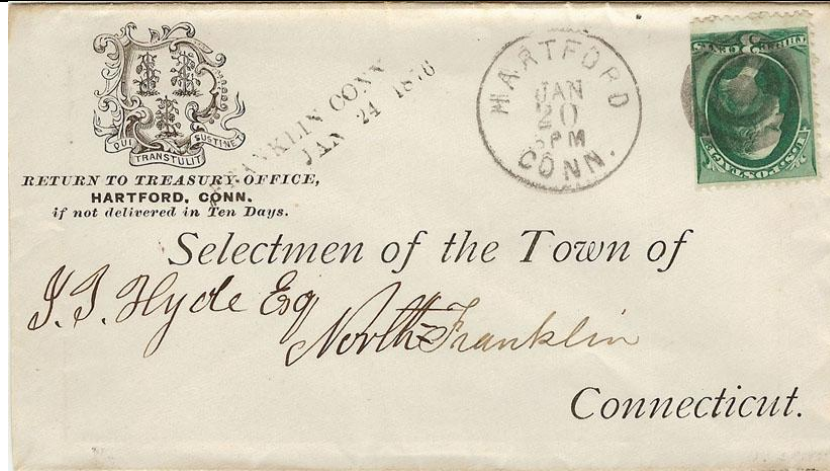 QUI TRANSTULIT SUSTINET
RETURN TO TREASURY-OFFICE,
HARTFORD, CONN.
if not delivered in Ten Days.
FRANKLIN CONN
JAN 24 1876
HARTFORD
JAN
20
PM
CONN.
U.S. POSTAGE
THREE CENTS
Selectmen of the Town of
Hyde Esq
North Franklin
Connecticut.